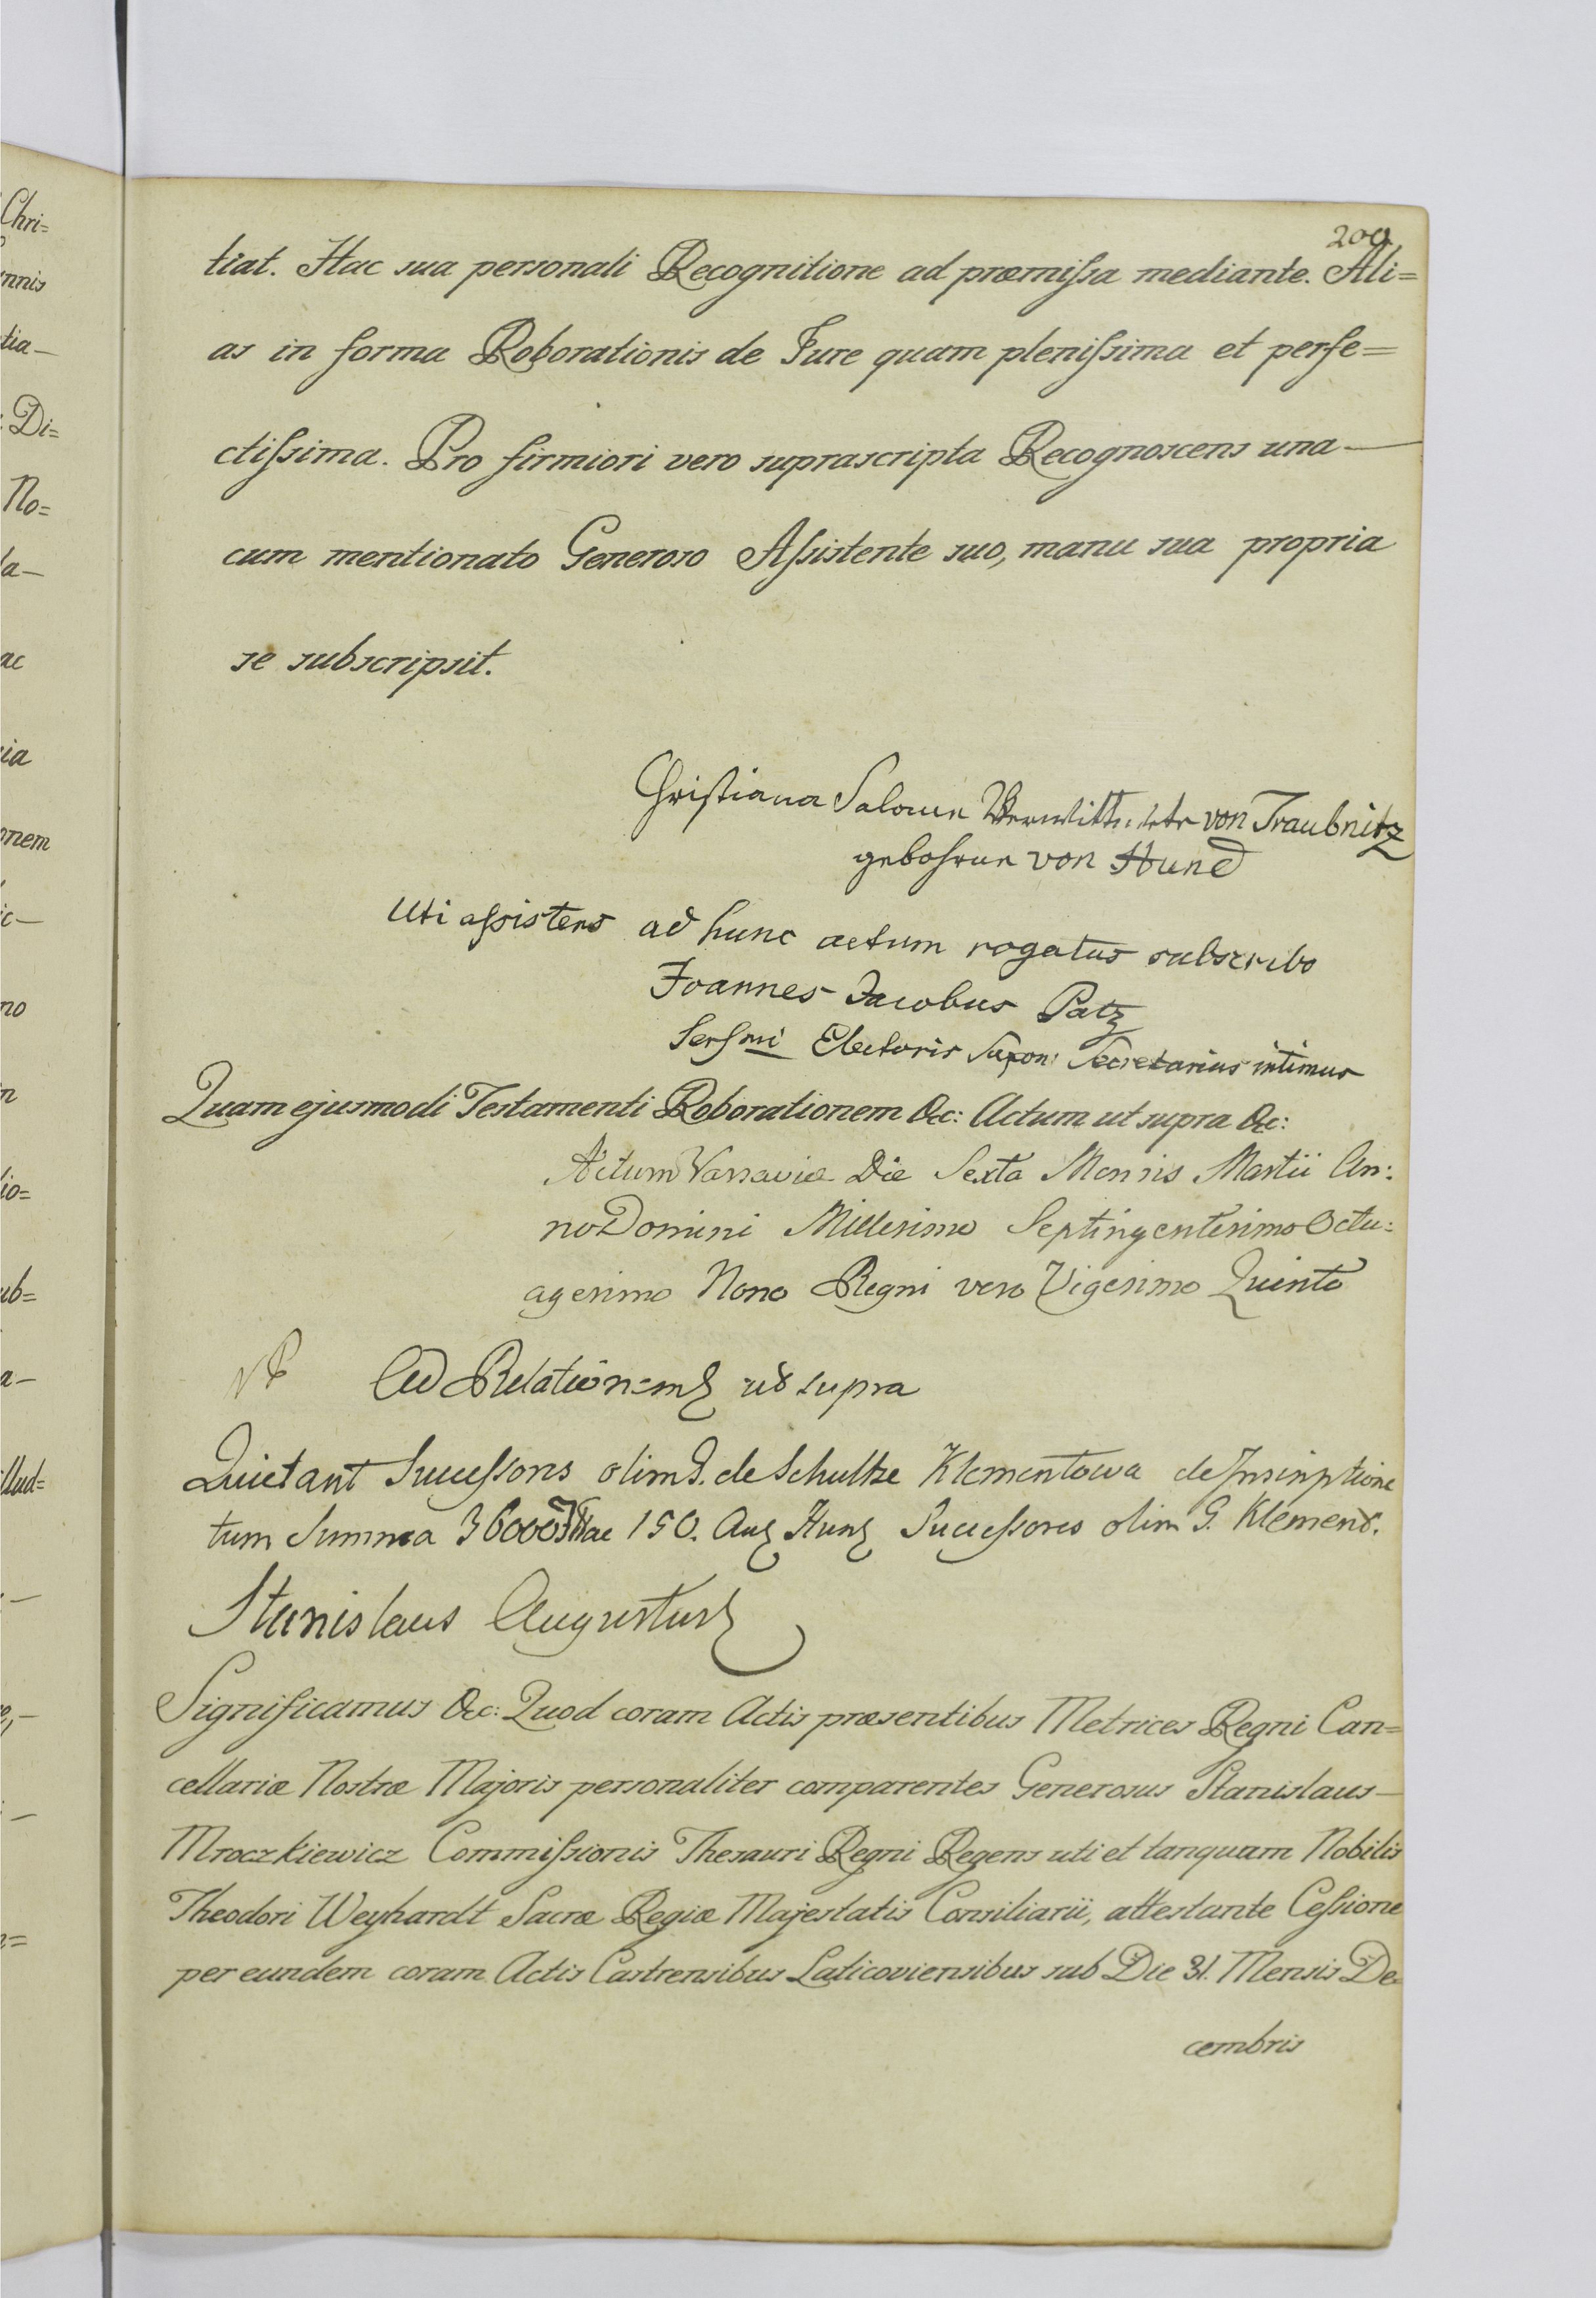 200
tiat. Hac sua personali Recognitione ad præmiſsa mediante. Ali=
as in forma Roborationis de Jure quam pleniſsima et perfe=
ctiſsima. Pro firmiori vero suprascripta Recognoscens una—
cum mentionato Generoso Aſsistente suo, manu sua propria
se subscripsit.
Chriſtiana Salome Verwittwete von Traubnitz
gebohrne von Hund
Uti aſsistens ad hunc actum rogatus subscribo
Joannes Jacobus Patz
Serſmi Electoris Saxon: Secretarius intimus
Quam ejusmodi Testamenti Roborationem &c: Actum ut supra &c:
Actum Varsaviæ Die Sexta Mensis Martii An:
no Domini Millesimo Septingentesimo Octu:
agesimo Nono Regni vero Vigesimo Quinto
Ad Relationem ut supra
Quietant Succeſsores olim G. de Schultze Klementowa de Inscriptione
tum Summa 36000 ac 150. Successores olim G. Klement.
Stanislaus Augustus
Significamus &c: Quod coram Actis præsentibus Metrices Regni Can=
cellariæ Nostræ Majoris personaliter comparentes Generosus Stanislaus—
Mroczkiewicz Commiſsionis Thesauri Regni Regens uti et tanquam Nobilis
Theodori Weyhardt Sacræ Regiæ Majestatis Consiliarii, attestante Ceſsione
per eundem coram Actis Castrensibus Laticoviensibus sub Die 31. Mensis De=
cembris
Chri=
nnis
tia—
Di=
No=
la—
ac
ia
onem
ic—
no
n
io=
ub=
a—
illud=